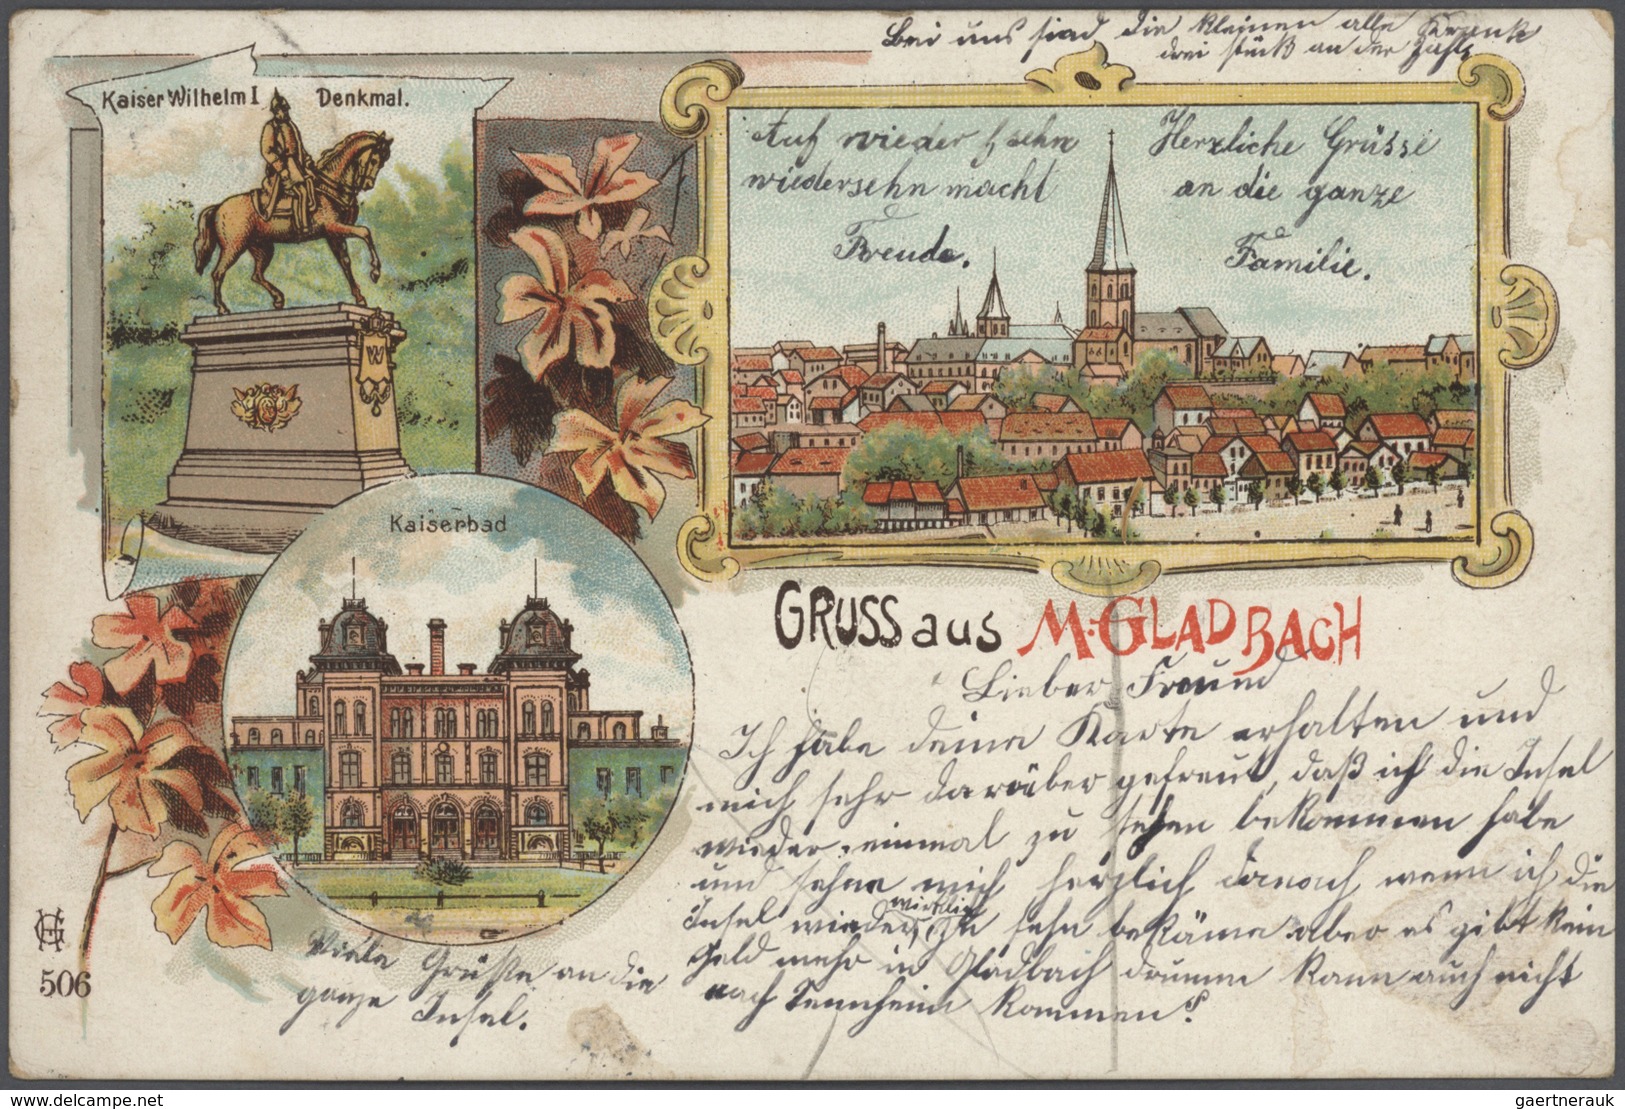 Bei uns sind die kleinen alle krank
drei stück an der Zahl,
Kaiser Wilhelm I Denkmal.
Auf wieder sehn
wiedersehn macht
Freude.
Herzliche Grüsse
an die ganze
Familie.
W
Kaiserbad
GRUSS aus M.GLADBACH
Lieber Freund
Ich habe deine Karte erhalten und
mich sehr darüber gefreut, daß ich die Insel
wieder einmal zu sehen bekommen habe
und sehne mich herzlich danach, wenn ich die
Insel wieder wirklich zu sehn bekäme aber es gibt kein
Geld mehr in Gladbach drumm kann auch nicht
nach Sennheim kommen!
Viele Grüße an die
ganze Insel.
506
gaertnerauk